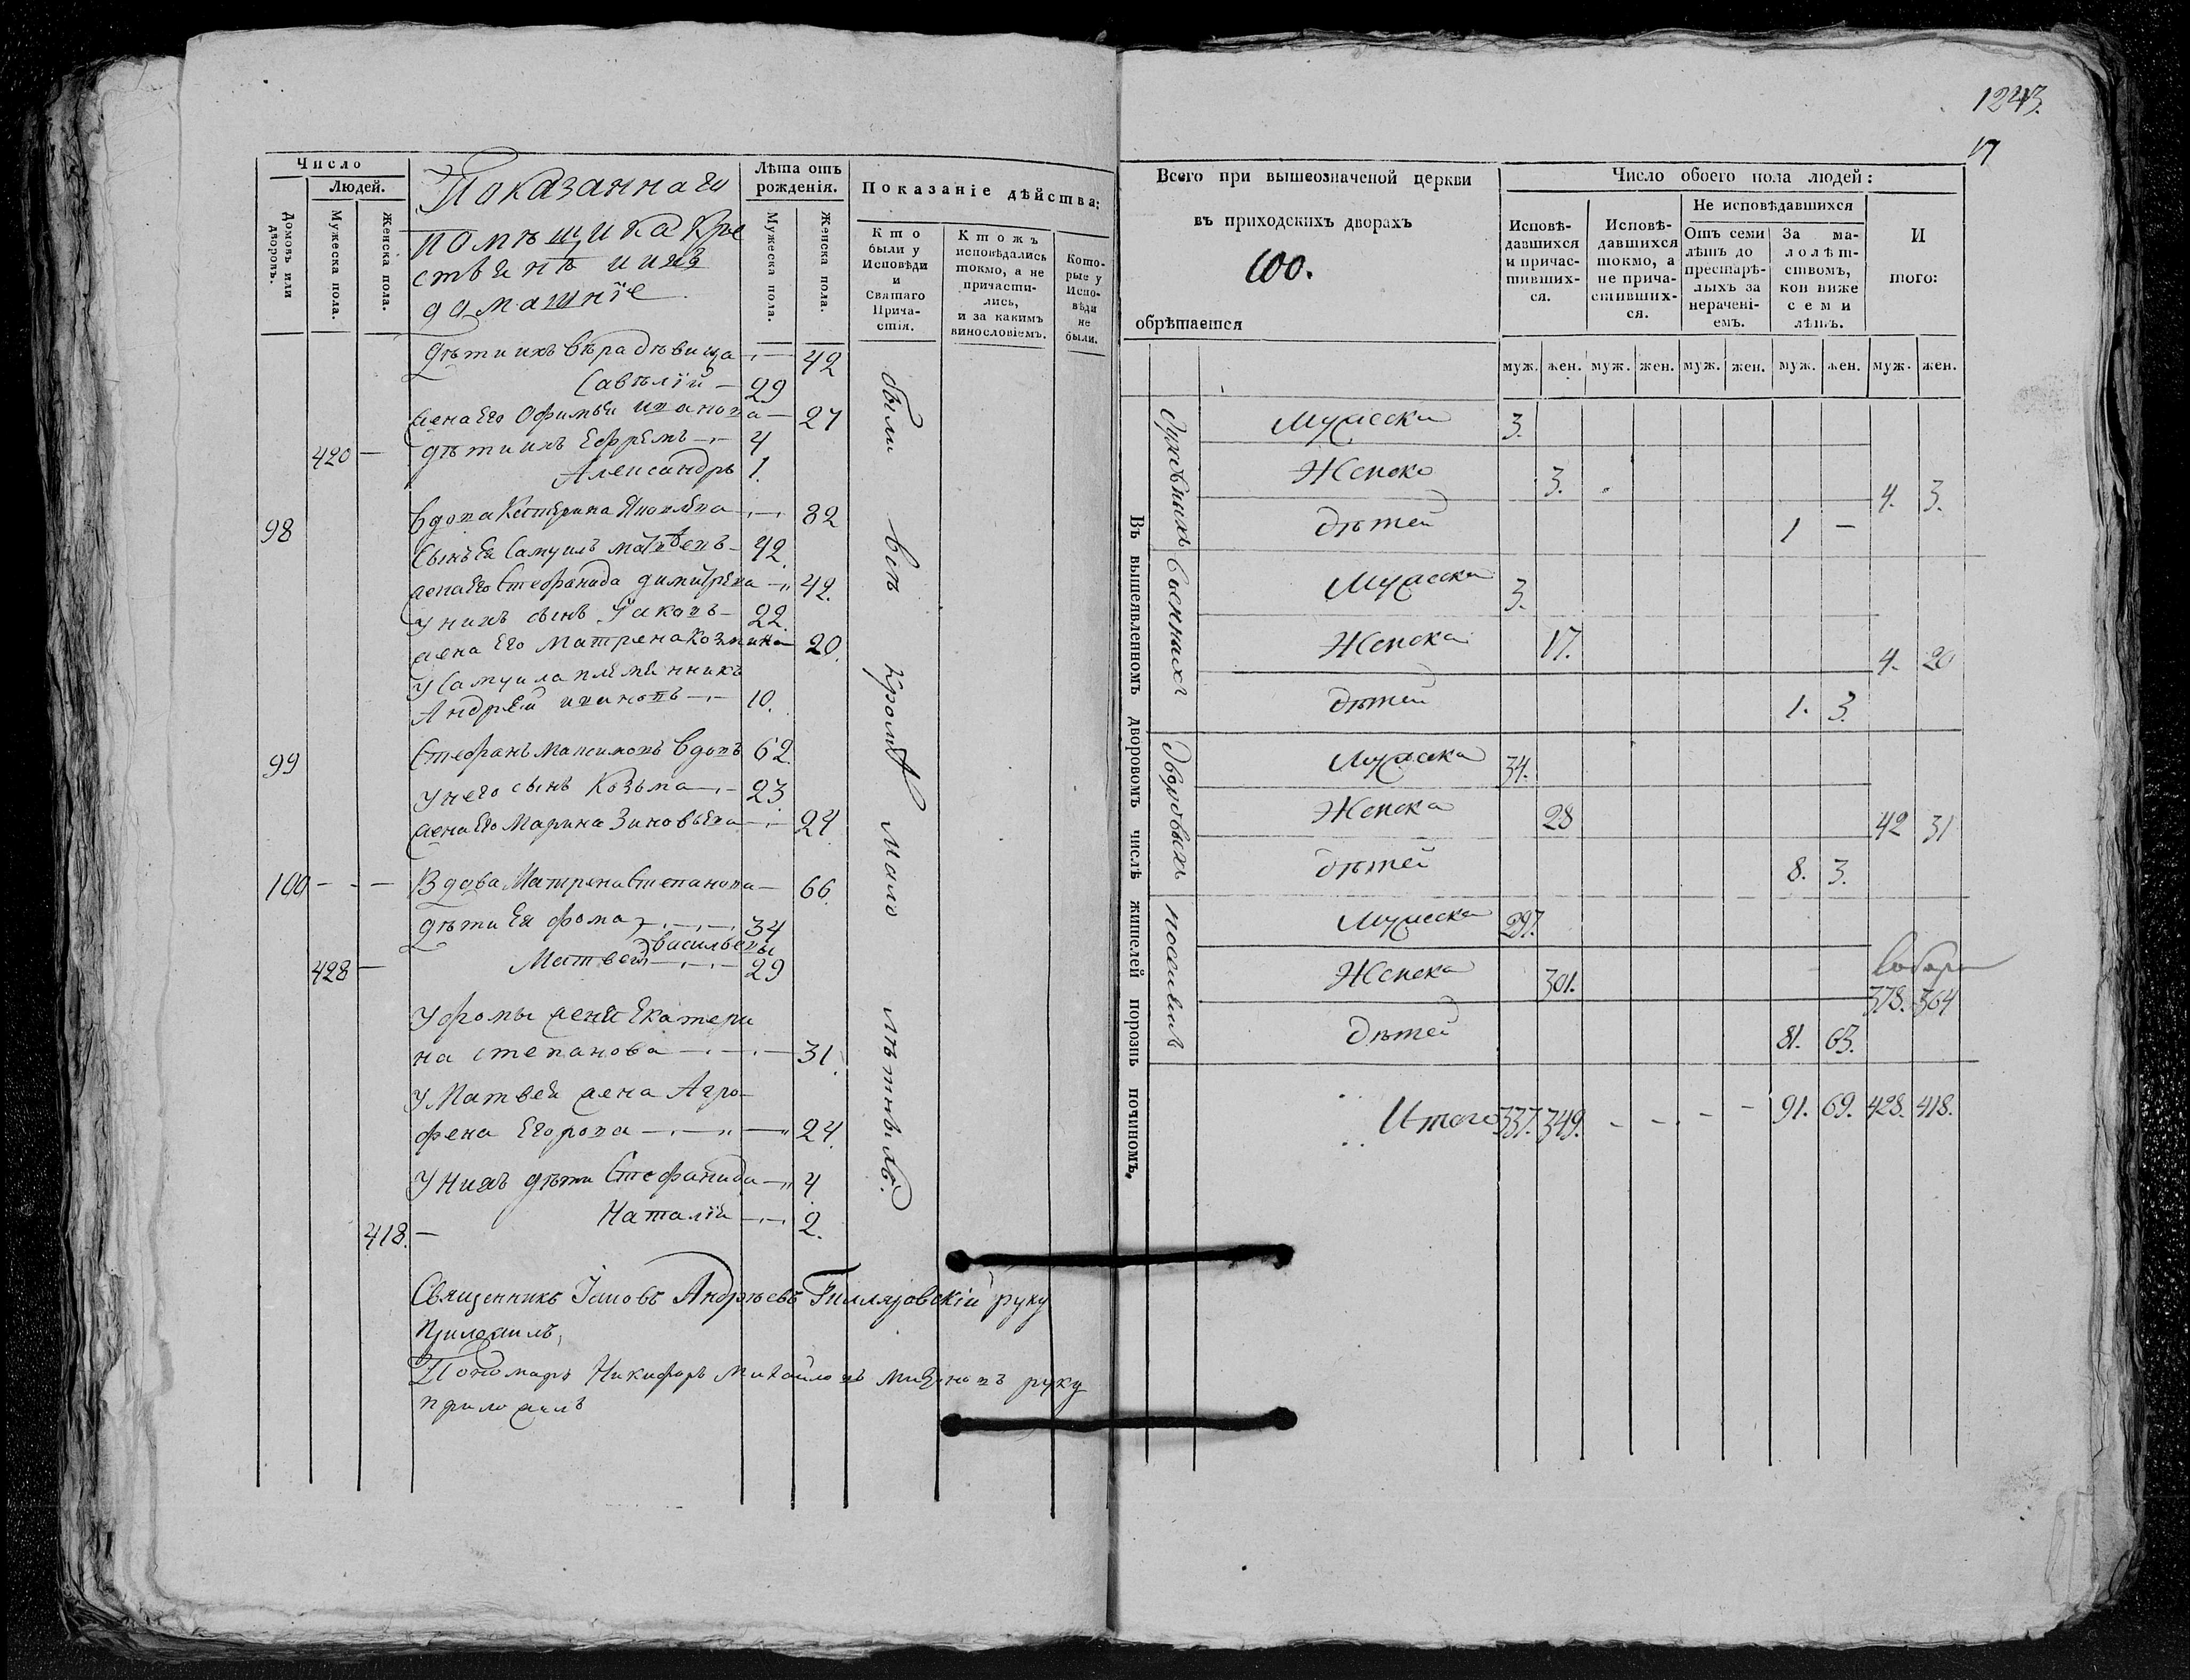 1243.
17
Число
Людей.
Домовъ или дворовъ.
Мужеска пола.
Женска пола.
Показаннаго
помѣщика кре
стьянѣ и ихъ
домашніе
Лѣта отъ
рожденія.
Мужеска пола.
Женска пола.
Показаніе дѣйства:
Кто
были у
Исповѣди
и
Святаго
Прича-
стія.
Ктожъ
исповѣдались
токмо, а не
причасти-
лись,
и за какимъ
винословіемъ.
Кото-
рые у
Испо-
вѣди
не
были.
дѣти ихъ Вѣра дѣвица 42
Савелій 29
жена Его Офимья иванова 27
420 дѣти ихъ Ефремъ 4
Александръ 1.
98 вдова Катерина 82
Сынъ Ея Самуилъ матвеевъ 42
жена Его Стефанида димитрева 42.
у нихъ сынъ Іаковъ 22.
жена Его Матрена козмина 20.
У Самуила племянникъ
Андрей ивановъ 10.
99 Стефанъ Максимовъ вдовъ 62.
у него сынъ Козьма 23.
жена Его Марина Зиновьева 24.
100 Вдова Матрена Степанова 66.
дѣти Ея фома 34
васильевы
428 Матвей 29
У фомы жена Екатери
на степанова 31.
У Матвея жена Агро-
фена Егорова 24.
У нихъ дѣти Стефанида 4
418. Наталія 2.
были всѣ кромѣ Мало лѣтныхъ.
Священникъ Іаковъ Андреевъ Гилляровскій руку
приложилъ,
Пономарь Никифоръ Михайловъ руку
приложилъ
Всего при вышеозначеной церкви
въ приходскихъ дворахъ
100.
обрѣтается
Число обоего пола людей:
Исповѣ-
давшихся
и причас-
тивших-
ся.
Исповѣ-
давшихся
токмо, а
не прича-
стивших-
ся.
Не исповѣдавшихся
Отъ семи
лѣтъ до
престарѣ-
лыхъ за
нерачені-
емъ.
За ма-
лолѣт-
ствомъ,
кои ниже
семи
лѣтъ.
И
того:
муж. жен. муж. жен. муж. жен. муж. жен. муж. жен.
Въ вышеявленномъ дворовомъ числѣ жителей порознь починомъ.
Духовныхъ
Мужеска 3.
Женска 3. 4. 3.
дѣтей 1 —
Военныхъ
Мужеска 3.
Женска 17. 4. 20
дѣтей 1. 3.
Дворовыхъ
Мужеска 34.
Женска 28 42 31
дѣтей 8. 3.
поселянъ
Мужеска 297.
Женска 301. 378. 364
дѣтей 81. 63.
Итого 337. 349. - - - - 91. 69. 428. 418.